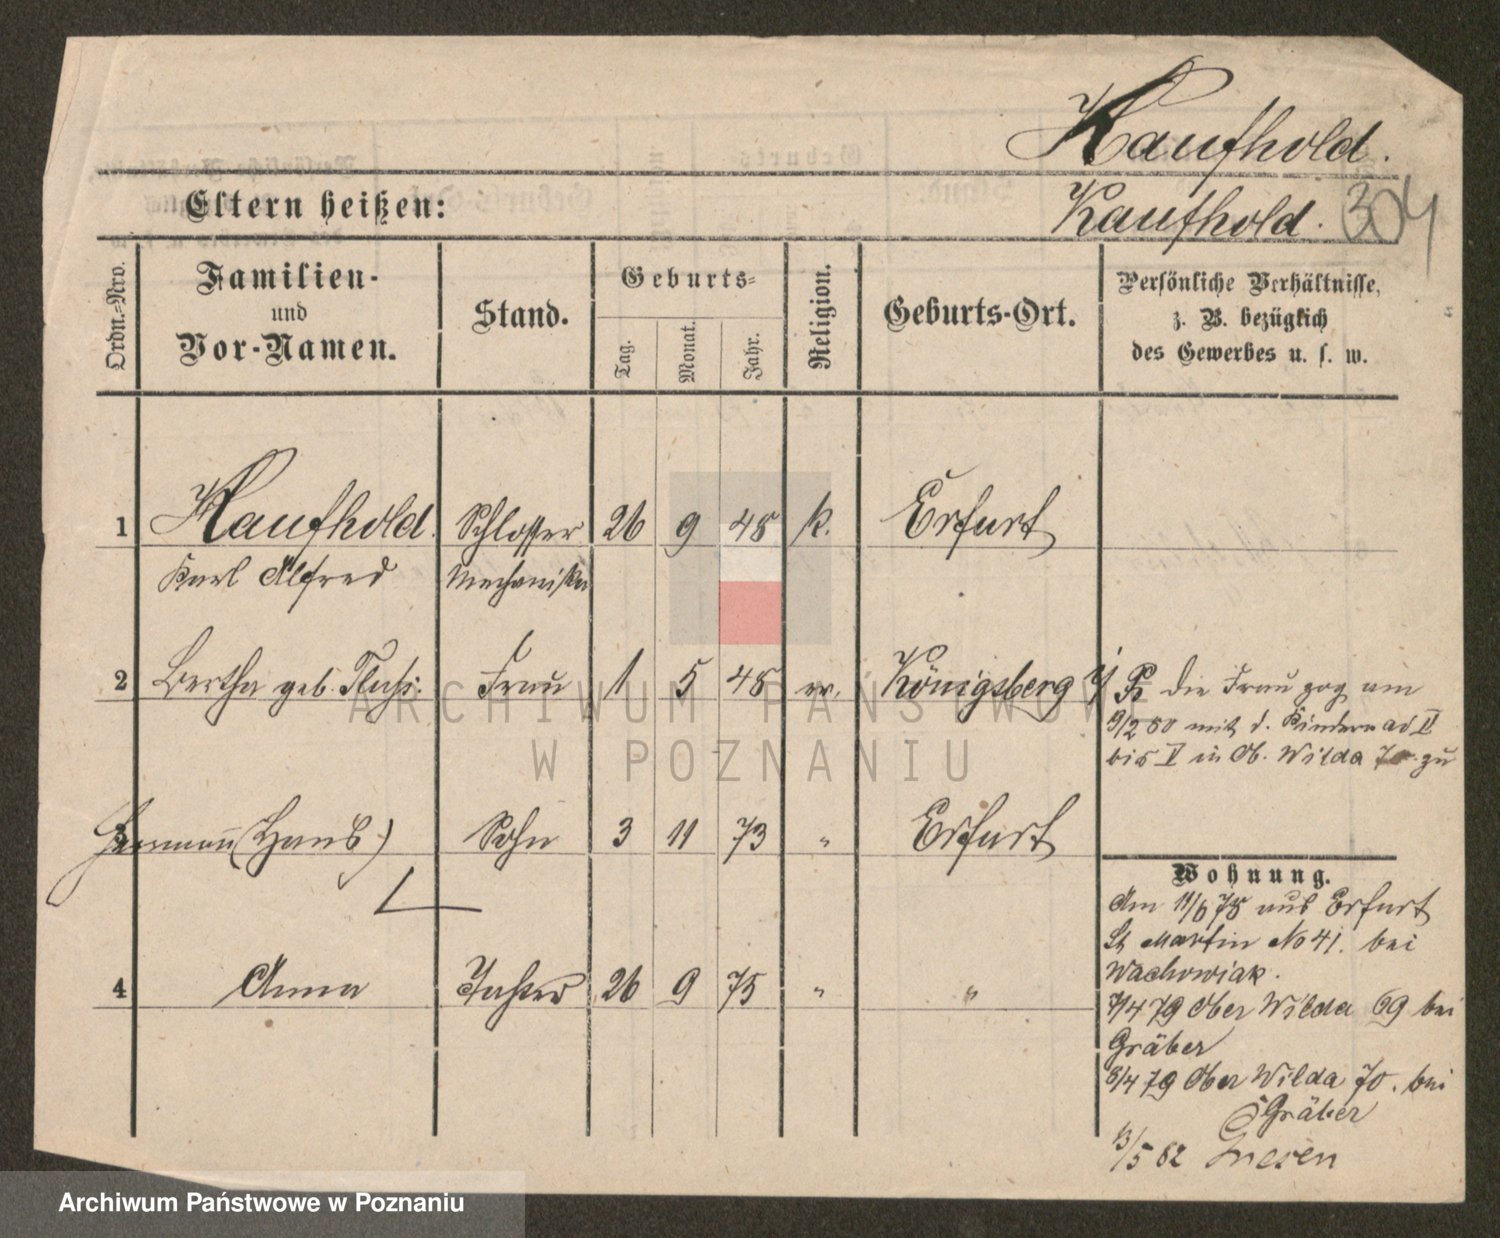 Kaufhold.
Eltern heißen:
Kaufhold. 304
Ordn.-Nro.
Familien-
und
Vor-Namen.
Stand.
Geburts-
Tag.
Monat.
Jahr.
Religion.
Geburts-Ort.
Persönliche Verhältnisse,
z. B. bezüglich
des Gewerbes u. s. w.
1 Kaufhold. Schlosser 26 9 48 k. Erfurt
Karl Alfred Mechaniker
2 Bertha geb. Frau 1 5 48 ev. Königsberg
die Frau zog am
19/2 80 mit d. Kindern ad II
bis V in Ob. Wilda 70 zu
3 Hermann (Hans) Sohn 3 11 73 " Erfurt
Wohnung.
Am 11/6 78 aus Erfurt
St Martin No 41. bei
Wachowiak.
4 Anna Tochter 26 9 75 " "
7/4 79 Ober Wilda 69 bei
Gräber
8/4 79 Ober Wilda 70. bei
Gräber
13/5 82 Gnesen
ARCHIWUM PAŃSTWOWE
W POZNANIU
Archiwum Państwowe w Poznaniu